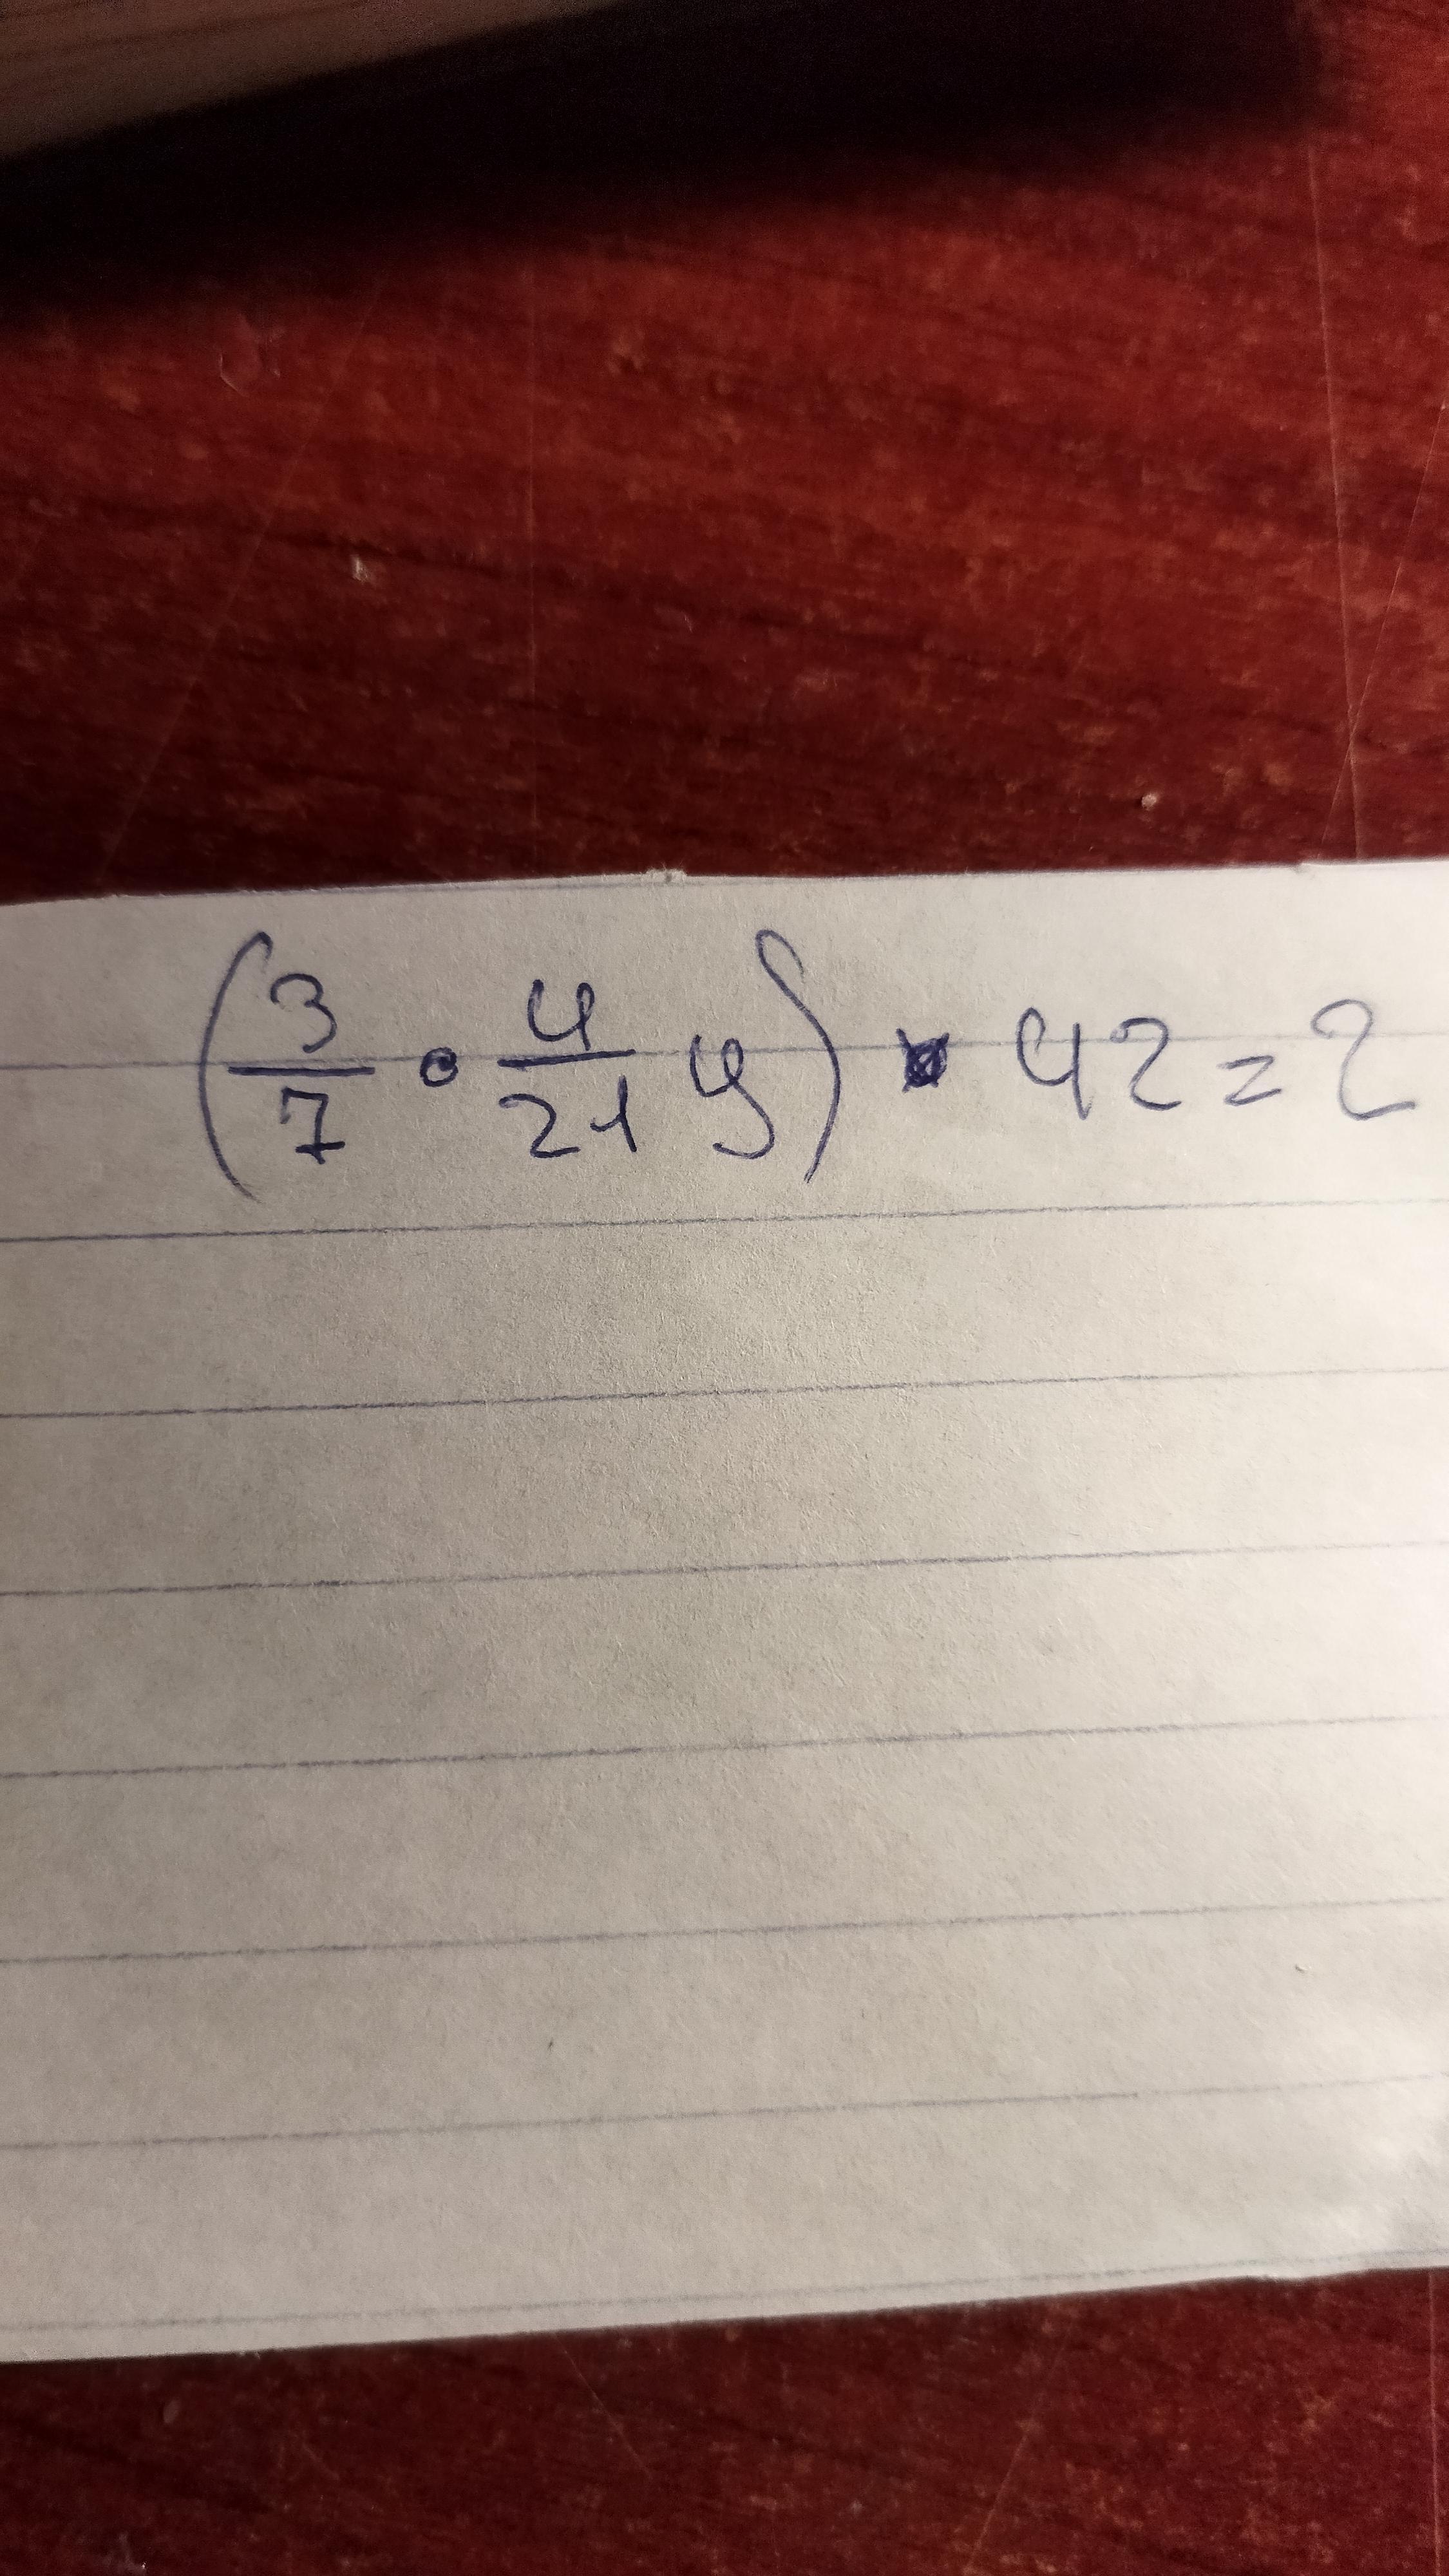 (3/7 • 4/21 y) • 42 = 2